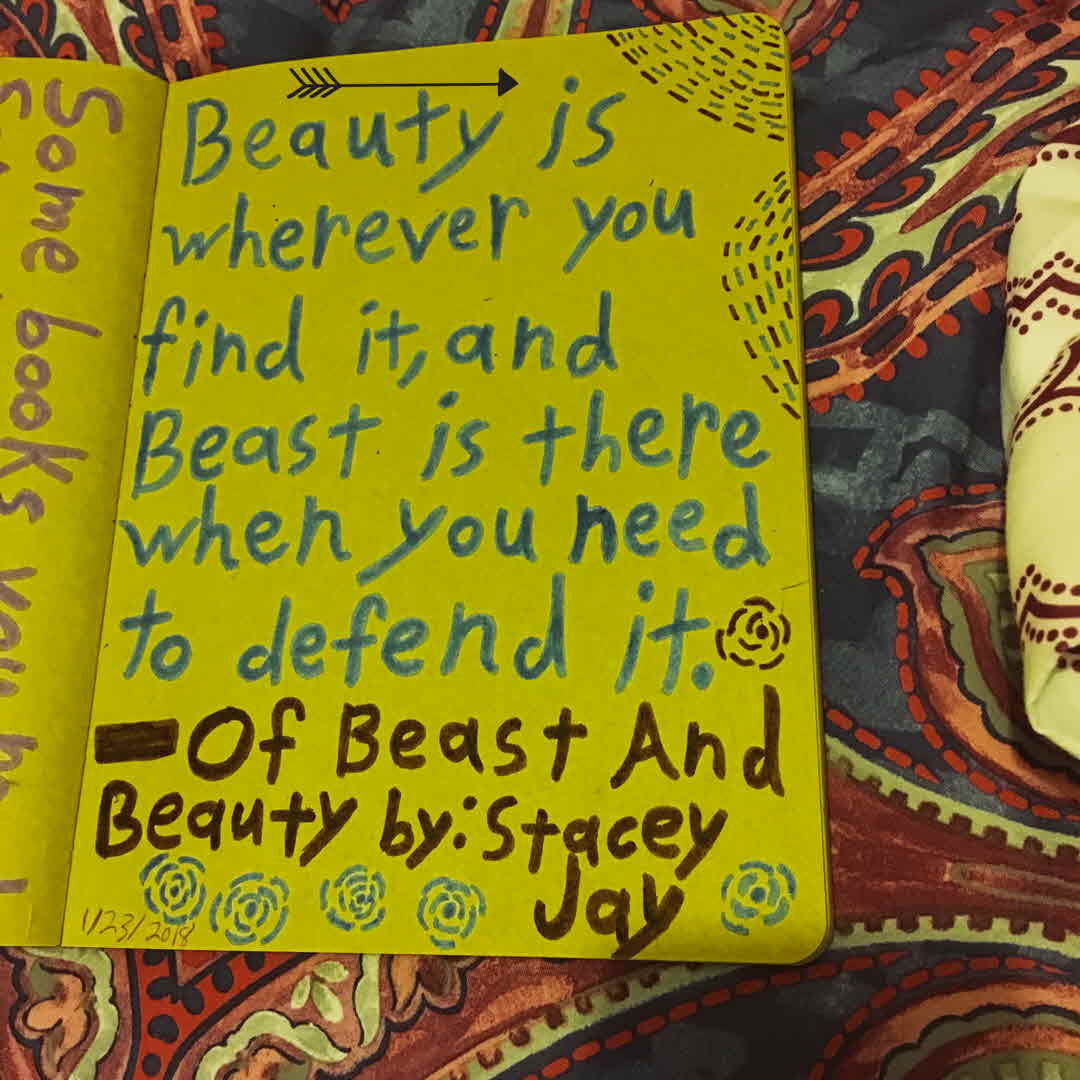 Some books you
Beauty is
wherever you
find it, and
Beast is there
when you need
to defend it.
-Of Beast And
Beauty by: Stacey
Jay
1/23/2018